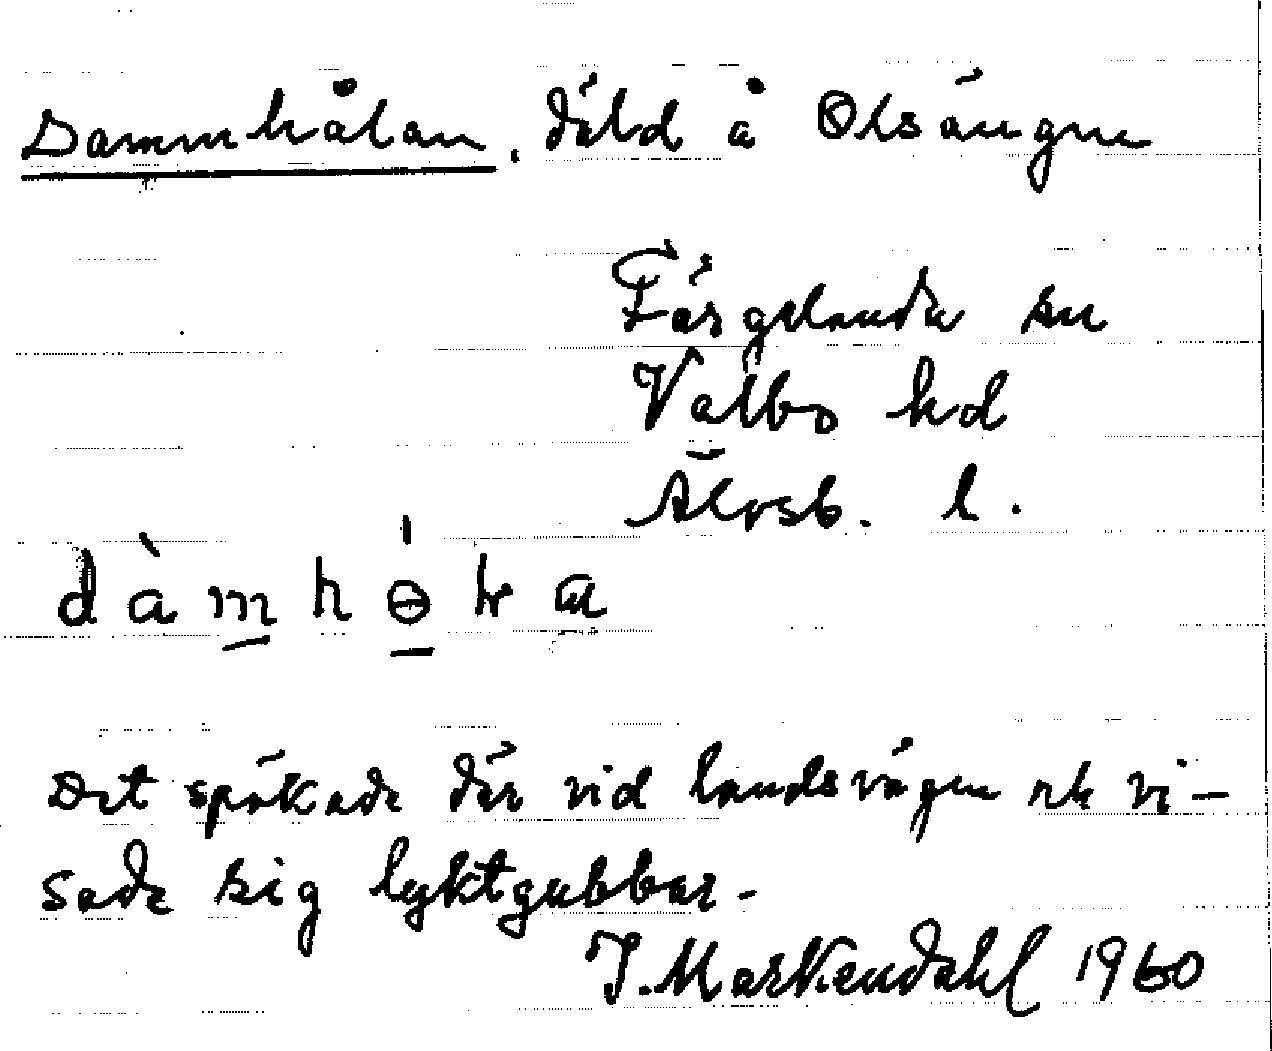 Dammhålan, däld å Olsängen
Färgelanda sn
Valbo hd
Älvsb. l.
dàmhɵ̀ka
Det spökade där vid landsvägen och vi-
sade sig lyktgubbar.
I. Markendahl 1960